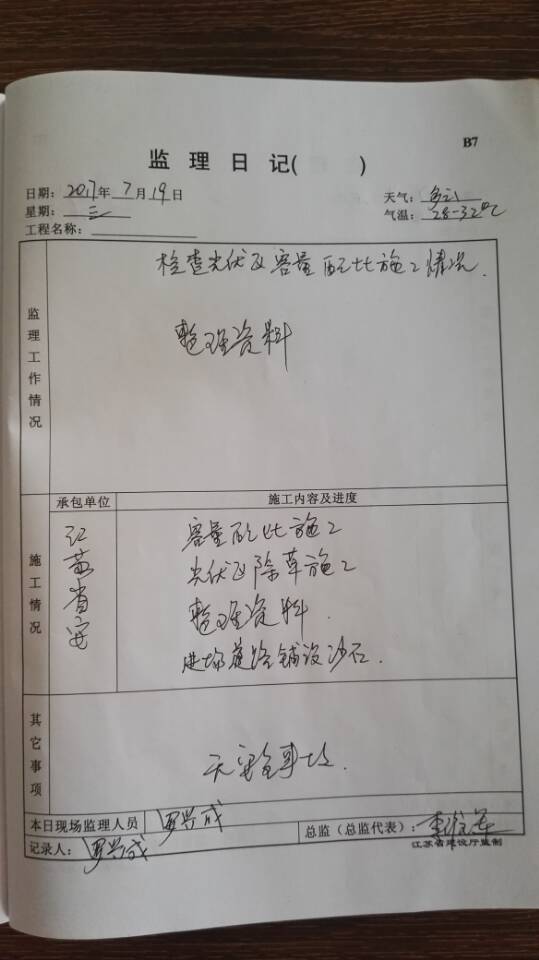 B7
监 理 日 记( )
日期: 2017年 7月19日
天气: 多云
星期: 三
气温: 28-32℃
工程名称:
监理工作情况
检查光伏区容量配比施工情况.
整理资料
承包单位
施工内容及进度
施工情况
江苏省安
容量配比施工
光伏区除草施工
整理资料
进场道路铺设沙石.
其它事项
无安全事故.
本日现场监理人员
罗兴成
总监（总监代表）:
记录人: 罗兴成
江苏省建设厅监制